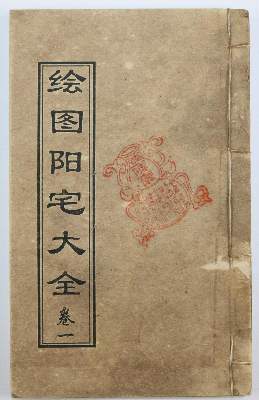 绘图阳宅大全
卷一